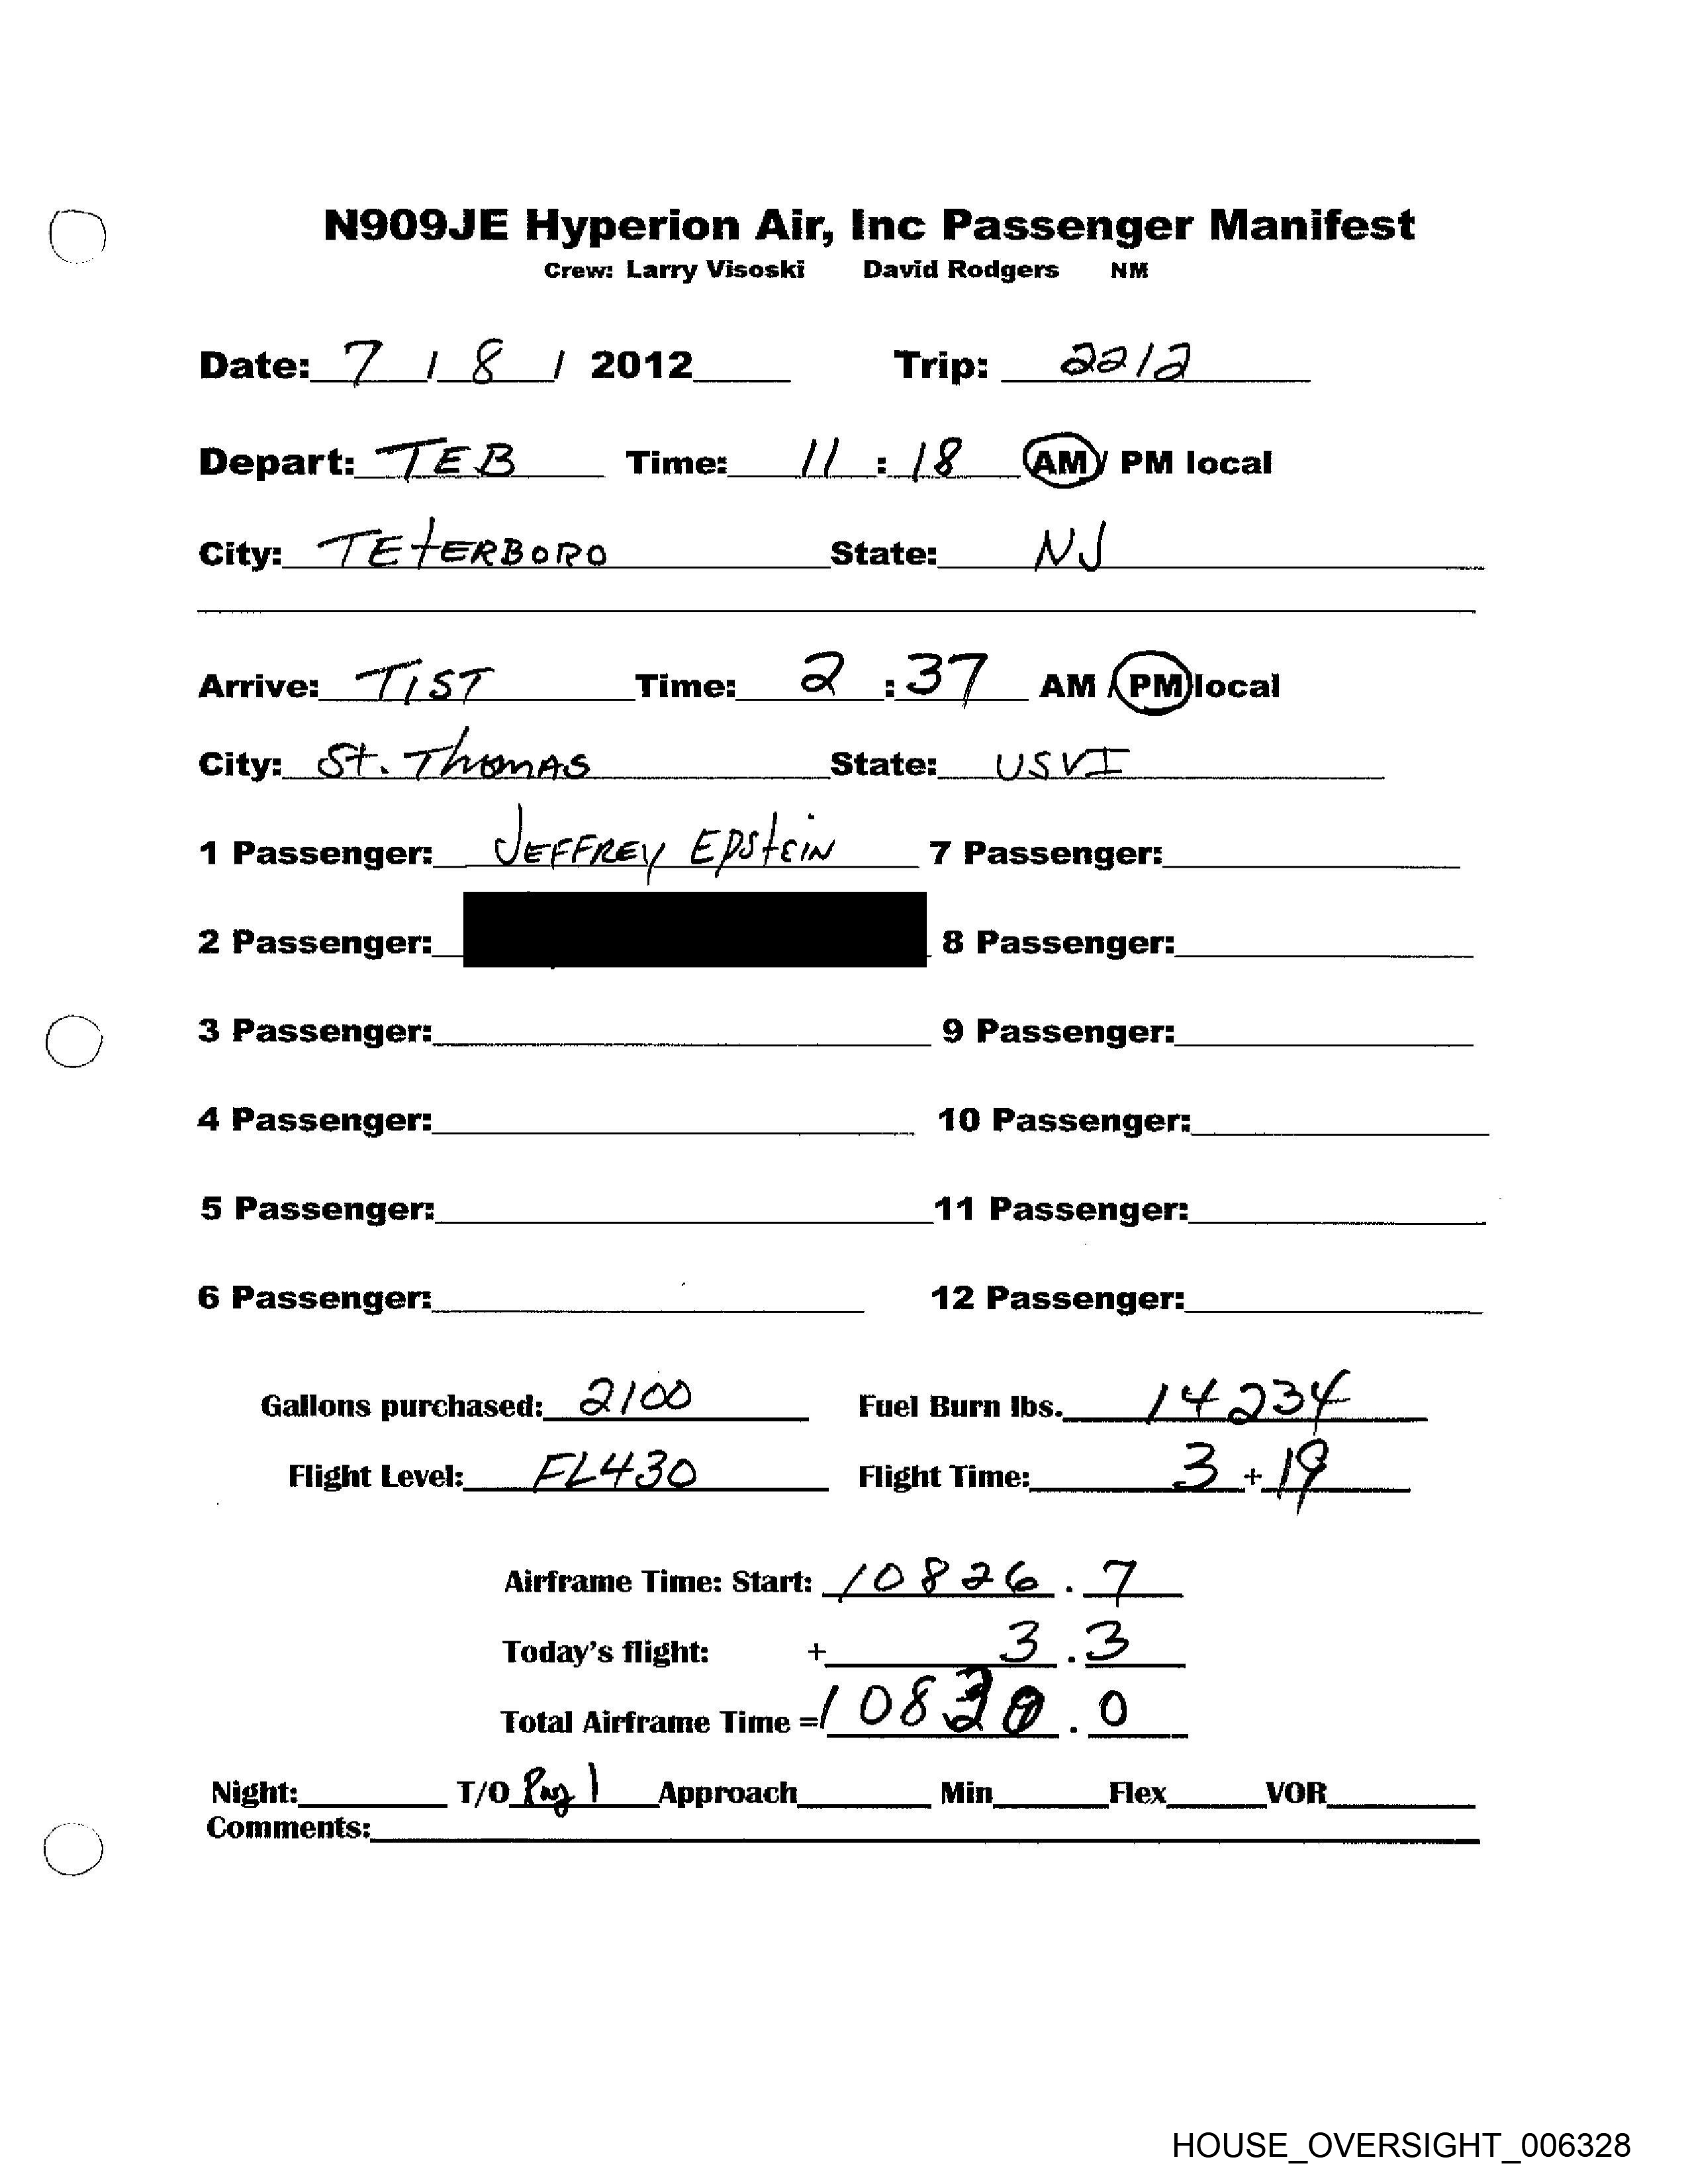 N909JE Hyperion Air, Inc Passenger Manifest
Crew: Larry Visoski David Rodgers NM
Date: 7 / 8 / 2012 Trip: 2212
Depart: TEB Time: 11 : 18 AM / PM local
City: TETERBORO State: NJ
Arrive: TIST Time: 2 : 37 AM / PM local
City: St. Thomas State: USVI
1 Passenger: JEFFREY EPSTEIN 7 Passenger:
2 Passenger: 8 Passenger:
3 Passenger: 9 Passenger:
4 Passenger: 10 Passenger:
5 Passenger: 11 Passenger:
6 Passenger: 12 Passenger:
Gallons purchased: 2100 Fuel Burn lbs. 14234
Flight Level: FL430 Flight Time: 3 + 19
Airframe Time: Start: 10826 . 7
Today's flight: + 3 . 3
Total Airframe Time = 10830 . 0
Night: T/O 1 Approach Min Flex VOR
Comments:
HOUSE_OVERSIGHT_006328